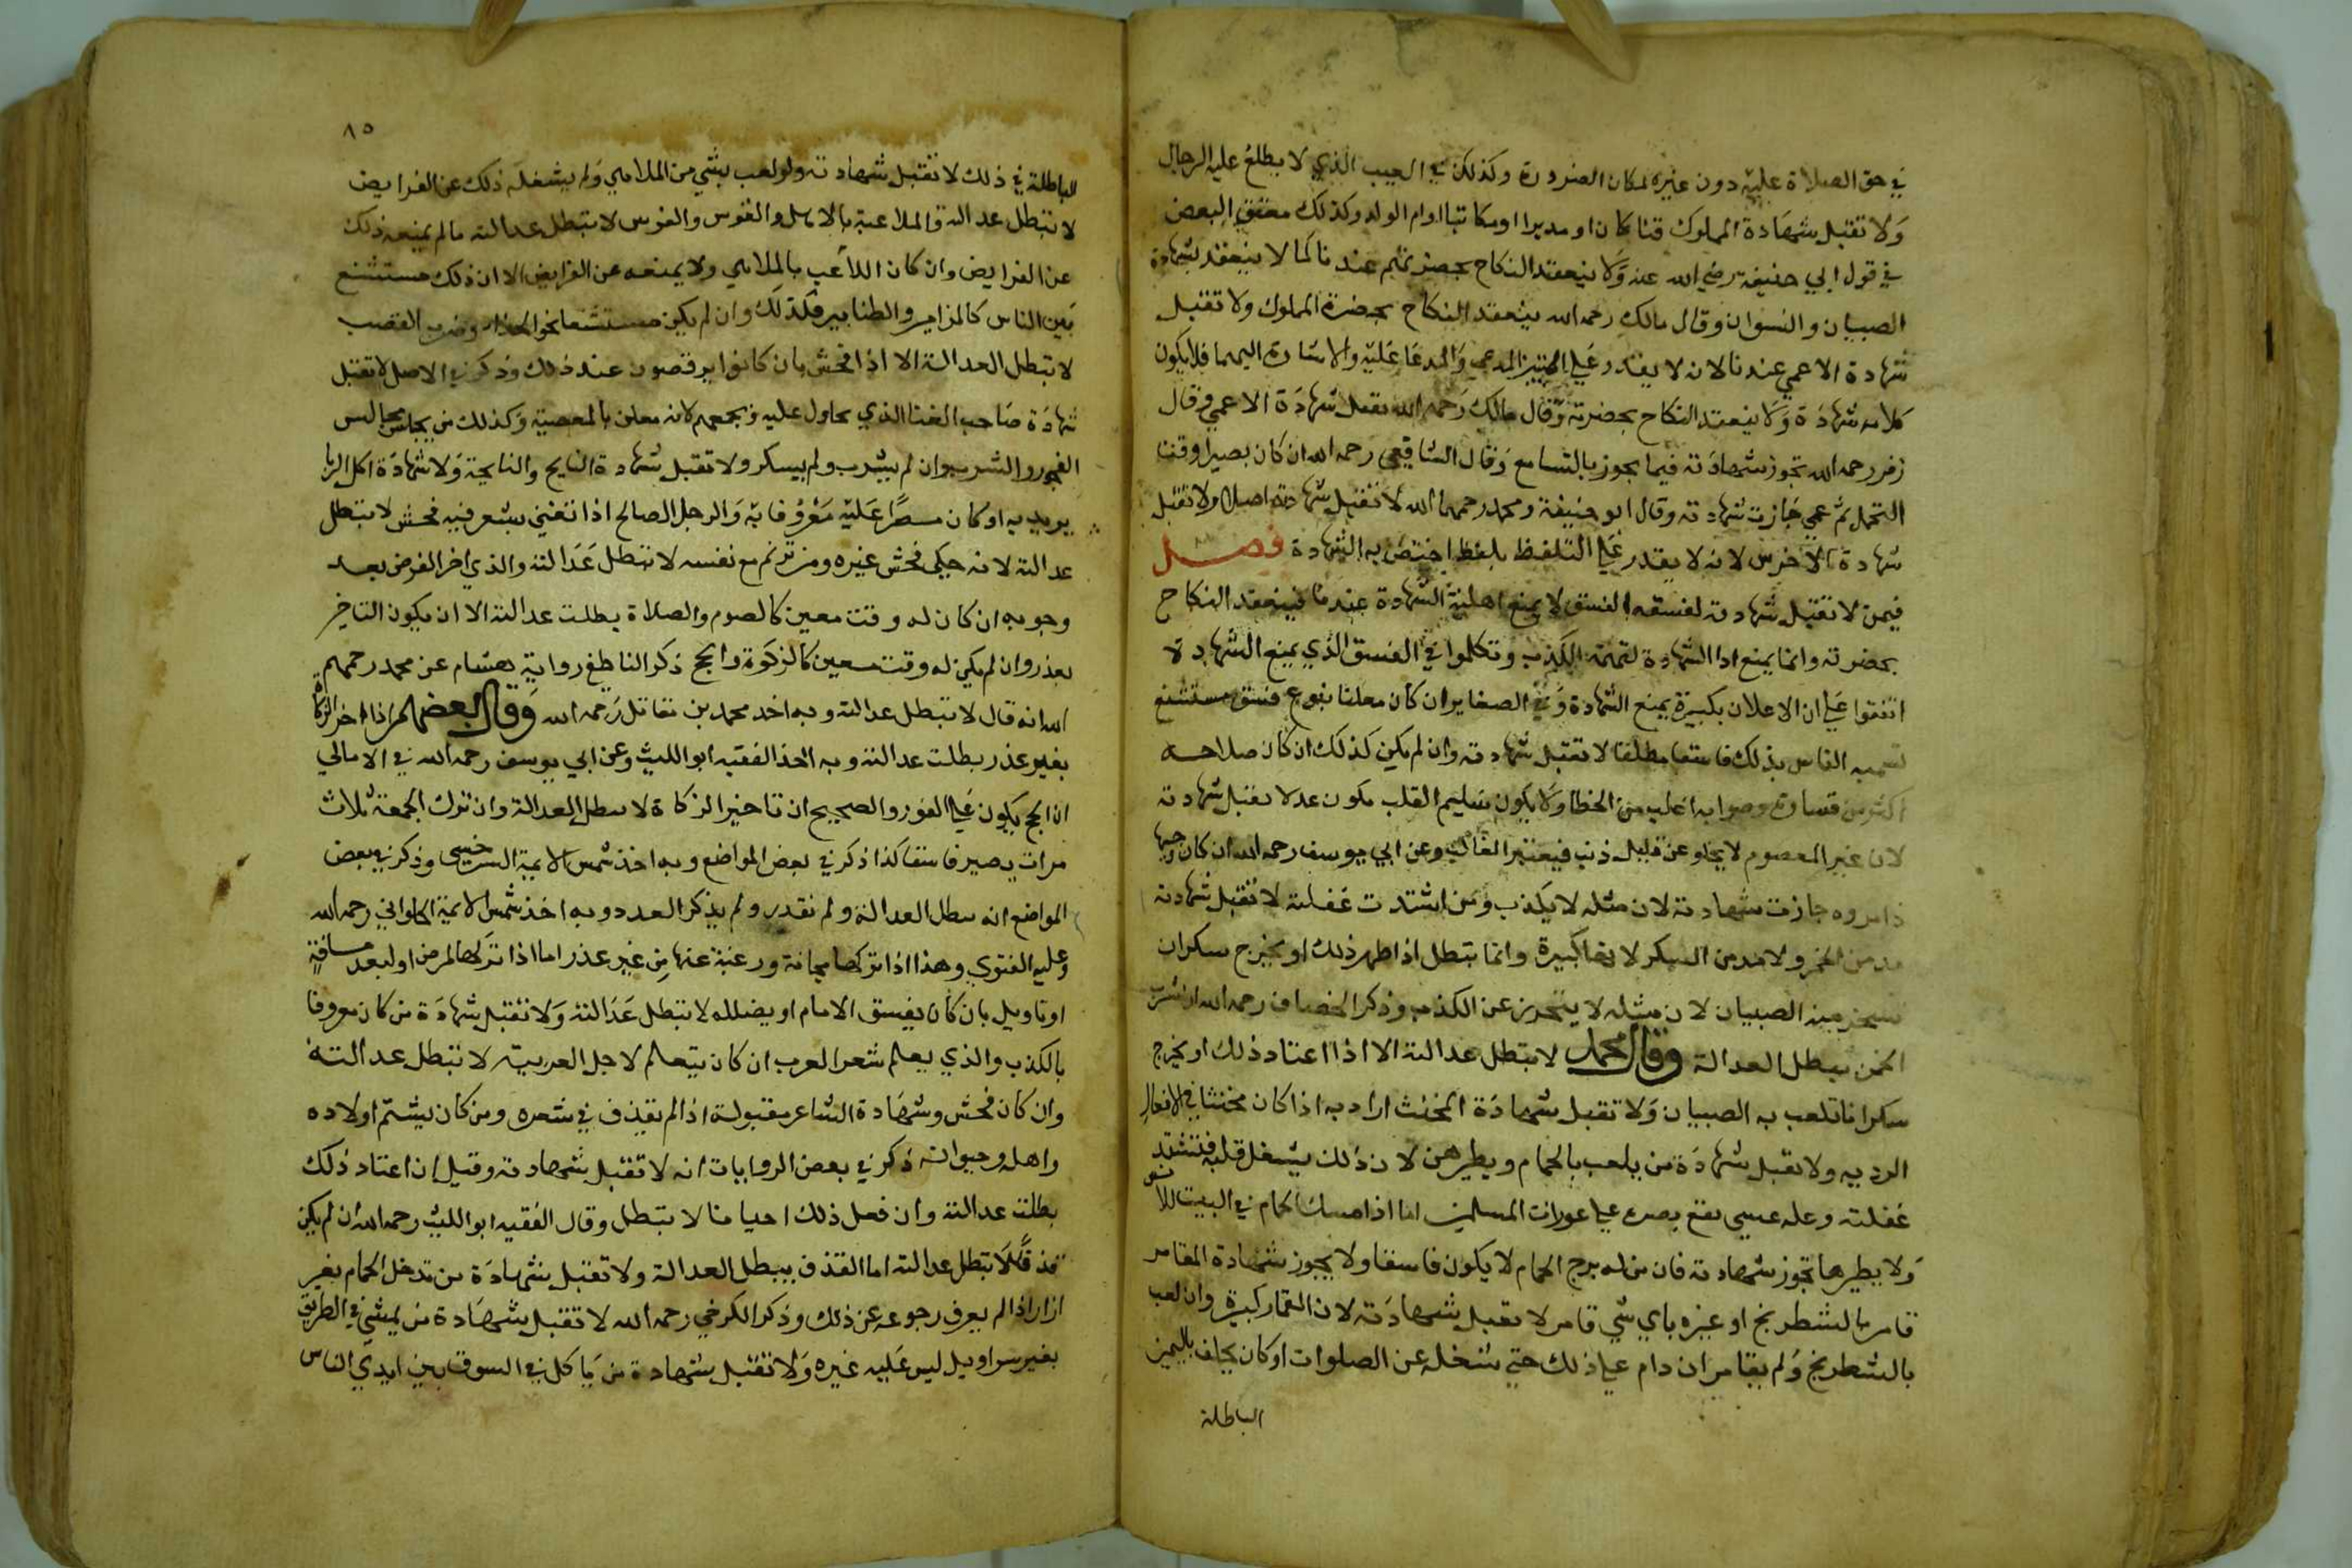 في حق الصلاة عليه دون غيره لمكان الضرورة وكذلك في العيب الذي لا يطلع عليه الرجال
ولا تقبل شهادة المملوك قنا كان او مدبرا او مكاتبا او ام الولد وكذلك معتق البعض
في قول ابي حنيفة رضي الله عنه ولا ينعقد النكاح بحضرتهم عندنا كما لا ينعقد بشهادة
الصبيان والنسوان وقال مالك رحمه الله ينعقد النكاح بحضرة المملوك ولا تقبل
شهادة الاعمي عندنا لانه لا يقدر علي التمييز المدعي والمدعا عليه والاشارة اليهما فلا يكون
كلامه شهادة ولا ينعقد النكاح بحضرته وقال مالك رحمه الله تقبل شهادة الاعمي وقال
زفر رحمه الله تجوز شهادته فيما يجوز بالتسامع وقال الشافعي رحمه الله ان كان بصيرا وقت
التحمل ثم عمي جازت شهادته وقال ابو حنيفة ومحمد رحمهما الله لا تقبل شهادته اصلا ولا تقبل
شهادة الاخرس لانه لا يقدر علي التلفظ بلفظ اختص به الشهادة فصل
فيمن لا تقبل شهادته لفسقه الفسق لا يمنع اهلية الشهادة عندنا فينعقد النكاح
بحضرته وانما يمنع ادا الشهادة لتهمة الكذب وتكلموا في الفسق الذي يمنع الشهادة
اتفقوا علي ان الاعلان بكبيرة يمنع الشهادة وفي الصغاير ان كان معلنا بنوع فسق مستشنع
تسميه الناس بذلك فاسقا مطلقا لا تقبل شهادته وان لم يكن كذلك ان كان صلاحه
اكثر من فساده وصوابه اغلب من الخطا ولا يكون سليم القلب يكون عدلا تقبل شهادته
لان غير المعصوم لا يخلو عن قليل ذنب فيعتبر الغالب وعن ابي يوسف رحمه الله ان كان وجيها
ذا مروه جازت شهادته لان مثله لا يكذب ومن اشتدت غفلته لا تقبل شهادته
مدمن الخمر ولا مدمن السكر لانها كبيرة وانما تبطل اذا ظهر ذلك او يخرج سكران
يسخر منه الصبيان لان مثله لا يتحرز عن الكذب وذكر الخصاف رحمه الله ان شرب
الخمر يبطل العدالة وقال محمد لا تبطل عدالته الا اذا اعتاد ذلك او يخرج
سكرانا تلعب به الصبيان ولا تقبل شهادة المخنث اراد به اذا كان مخنثا في الافعال
الرديه ولا تقبل شهادة من يلعب بالحمام ويطيرهن لان ذلك يشغل قلبه فتشتد
غفلته وعله عسى يقع بصره علي عورات المسلمين اما اذا امسك الحمام في البيت للانس
ولا يطيرها تجوز شهادته فان من له برج الحمام لا يكون فاسقا ولا يجوز شهادة المقامر
قامر بالشطرنج او غيره باي شي قامر لا تقبل شهادته لان القمار كبيرة وان لعب
بالشطرنج ولم يقامر ان دام علي ذلك حتى شغله عن الصلوات او كان يحلف باليمين
الباطلة
٨٥
الباطلة في ذلك لا تقبل شهادته ولو لعب بشي من الملاهي ولم يشغله ذلك عن الفرايض
لا تبطل عدالته والملاعبة بالاهل والقوس والفرس لا تبطل عدالته ما لم يمنعه ذلك
عن الفرايض وان كان اللاعب بالملاهي ولا يمنعه عن الفرايض الا ان ذلك مستشنع
بين الناس كالمزامير والطنابير فكذلك وان لم يكن مستشنعا نحو الحداء وضرب القضيب
لا تبطل العدالة الا اذا فحش بان كانوا يرقصون عند ذلك وذكر في الاصل لا تقبل
شهادة صاحب الغنا الذي يحاول عليه ويجمعهم لانه معلن بالمعصية وكذلك من يجلس مجالس
الفجور والشرب وان لم يشرب ولم يسكر ولا تقبل شهادة النايح والنايحة ولا شهادة اكل الربا
يريد به او كان مصرا عليه معروفا به والرجل الصالح اذا تغني بشعر فيه فحش لا تبطل
عدالته لانه حكي فحش غيره ومن ترنم مع نفسه لا تبطل عدالته والذي اخر الفرض بعد
وجوبه ان كان له وقت معين كالصوم والصلاة بطلت عدالته الا ان يكون التاخير
بعذر وان لم يكن له وقت معين كالزكوة والحج ذكر الناطفي رواية هشام عن محمد رحمهم
الله انه قال لا تبطل عدالته وبه اخذ محمد بن مقاتل رحمه الله وقال بعضهم اذا اخر الزكاة
بغير عذر بطلت عدالته وبه اخذ الفقيه ابو الليث وعن ابي يوسف رحمه الله في الامالي
ان الحج يكون علي الفور والصحيح ان تاخير الزكاة لا يبطل العدالة وان ترك الجمعة ثلاث
مرات يصير فاسقا كذا ذكر في بعض المواضع وبه اخذ شمس الايمة السرخسي وذكر في بعض
المواضع انه يبطل العدالة ولم نقدر ولم يذكر العدد وبه اخذ شمس الايمة الحلواني رحمه الله
وعليه الفتوي وهذا اذا تركها مجانة ورغبة عنها من غير عذر اما اذا تركها لمرض او لبعد مسافة
او تاويل بان كان يفسق الامام او يضلله لا تبطل عدالته ولا تقبل شهادة من كان معروفا
بالكذب والذي يعلم شعر العرب ان كان يتعلم لاجل العربية لا تبطل عدالته
وان كان فحش وشهادة الشاعر مقبولة اذا لم يقذف في شعره ومن كان يشتم اولاده
واهله وجيرانه ذكر في بعض الروايات انه لا تقبل شهادته وقيل ان اعتاد ذلك
بطلت عدالته وان فعل ذلك احيانا لا تبطل وقال الفقيه ابو الليث رحمه الله ان لم يكن
قذفا لا تبطل عدالته اما القذف يبطل العدالة ولا تقبل شهادة من تدخل الحمام بغير
ازار اذا لم يعرف رجوعه عن ذلك وذكر الكرخي رحمه الله لا تقبل شهادة من يمشي في الطريق
بغير سراويل ليس عليه غيره ولا تقبل شهادة من ياكل في السوق بين ايدي الناس